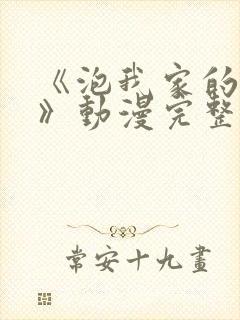 《泡我家的
》動漫完整
常安十九畫